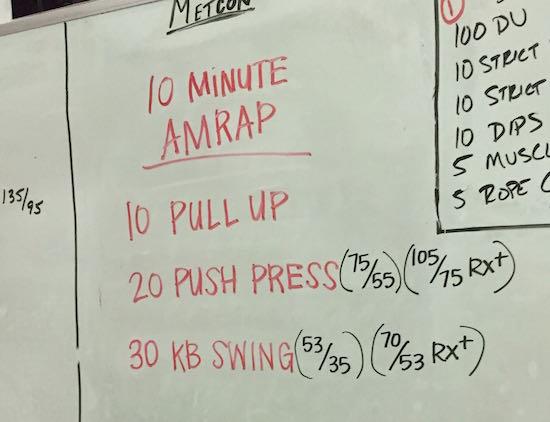 METCON
10 MINUTE
AMRAP
10 PULL UP
20 PUSH PRESS (75/55) (105/75 RX+)
30 KB SWING (53/35) (70/53 RX+)
135/95
1
100 DU
10 STRICT
10 STRICT
10 DIPS
5
5 ROPE